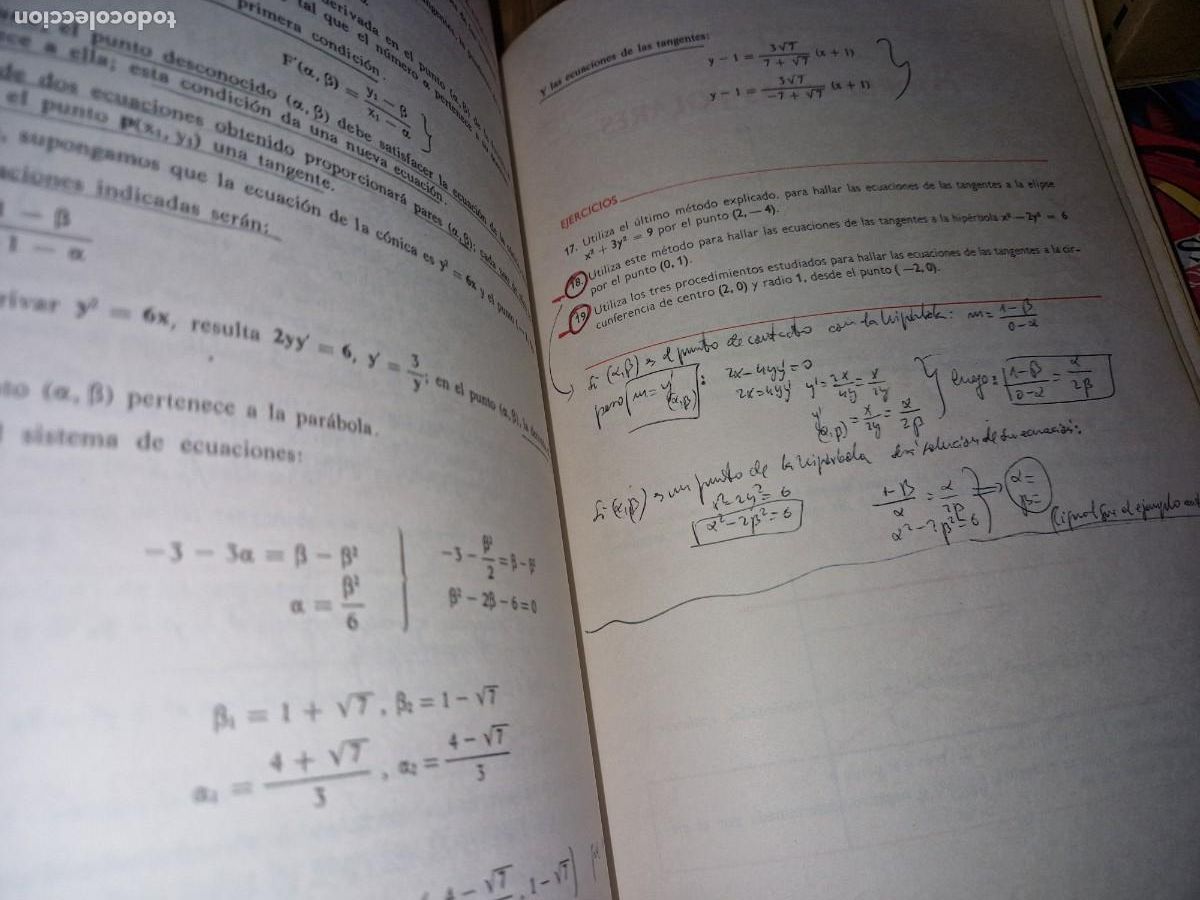 todocoleccion
derivada en el punto (α, β) de la
tal que el número α pertenece a su
primera condición.
F'(α, β) = y₁ − β / x₁ − α
el punto desconocido (α, β) debe satisfacer la ecuación de la
ece a ella; esta condición da una nueva ecuación.
de dos ecuaciones obtenido proporcionará pares (α, β); cada
el punto P(x₁, y₁) una tangente.
supongamos que la ecuación de la cónica es y² = 6x y el punto
aciones indicadas serán:
1 − β / 1 − α
rivar y² = 6x, resulta 2yy' = 6, y' = 3/y; en el punto (α, β), la
to (α, β) pertenece a la parábola.
sistema de ecuaciones:
−3 − 3α = β − β² −3 − β²/2 = β − β²
α = β²/6 β² − 2β − 6 = 0
β₁ = 1 + √7 , β₂ = 1 − √7
α₁ = 4 + √7 / 3 , α₂ = 4 − √7 / 3
4 − √7 , 1 − √7)
y las ecuaciones de las tangentes:
y − 1 = 3√7 / 7 + √7 (x + 1)
y − 1 = 3√7 / −7 + √7 (x + 1)
EJERCICIOS
17. Utiliza el último método explicado, para hallar las ecuaciones de las tangentes a la elipse
x² + 3y² = 9 por el punto (2, − 4).
18. Utiliza este método para hallar las ecuaciones de las tangentes a la hipérbola x² − 2y² = 6
por el punto (0, 1).
19. Utiliza los tres procedimientos estudiados para hallar las ecuaciones de las tangentes a la cir-
cunferencia de centro (2, 0) y radio 1, desde el punto ( −2, 0).
Si (α, β) es el punto de contacto con la hipérbola: m = 1−β / 0−α
pero m = y'(α, β) : 2x − 4yy' = 0
2x = 4yy' y' = 2x/4y = x/2y
luego: 1−β / 0−α = α / 2β
y'(α, β) = x/2y = α/2β
Si (α, β) es un punto de la hipérbola será solución de su ecuación:
x² − 2y² = 6
α² − 2β² = 6
1−β / α = α / 2β
α² − 2β² = 6
α =
β =
(igual que el ejemplo